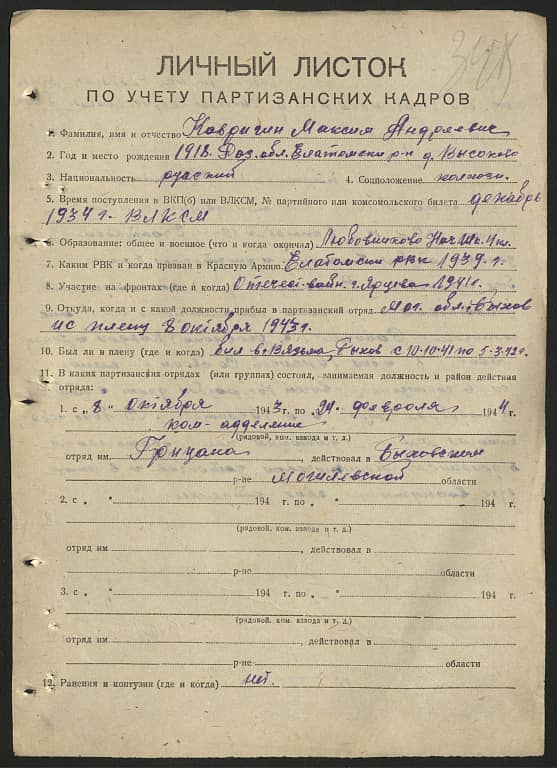 ЛИЧНЫЙ ЛИСТОК
ПО УЧЕТУ ПАРТИЗАНСКИХ КАДРОВ
1. Фамилия, имя и отчество Кавригин Максим Андреевич
2. Год и место рождения 1918. Ряз. обл. Елатомски р-н д. Высоково
3. Национальность русский 4. Соцположение колхозн.
5. Время поступления в ВКП(б) или ВЛКСМ, № партийного или комсомольского билета декабрь
1934 г. ВЛКСМ
6. Образование: общее и военное (что и когда окончил) Любовниково Нач. шк. 4 кл.
7. Каким РВК и когда призван в Красную Армию Елатомски рвк 1939 г.
8. Участие на фронтах (где и когда) Отечест. войн. г. Ярцева 1941 г.
9. Откуда, когда и с какой должности прибыл в партизанский отряд Мог. обл. г. Быхов
ис плену 8 октября 1943 г.
10. Был ли в плену (где и когда) был в г. Вязьма, Быхов с 10-10-41 по 5-3-42 г.
11. В каких партизанских отрядах (или группах) состоял, занимаемая должность и район действия
отряда:
1. с „8" октября 1943 г. по „24" февроля 1944 г.
ком-адделение
(рядовой, ком. взвода и т. д.)
отряд им Грицана, действовал в Быховском
р-не Могилевской области
2. с „ " 194 г. по „ " 194 г.
(рядовой, ком. взвода и т. д.)
отряд им , действовал в
р-не области
3. с „ " 194 г. по „ " 194 г.
(рядовой, ком. взвода и т. д.)
отряд им , действовал в
р-не области
12. Ранения и контузии (где и когда) нет.